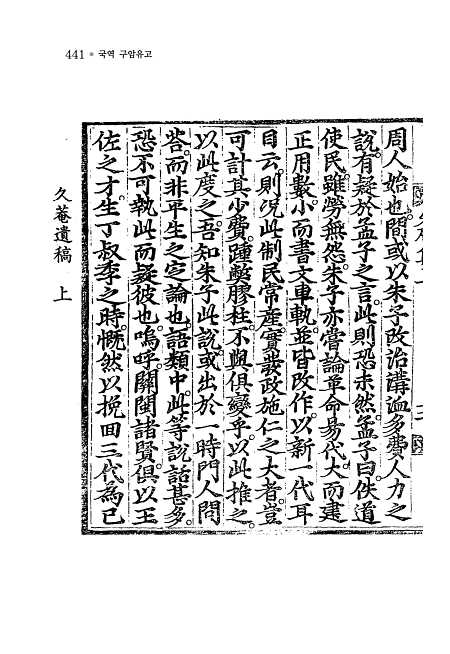 441 ● 국역 구암유고
周人始也。間或以朱子改治溝洫多費人力之
說。有疑於孟子之言。此則恐未然。孟子曰。佚道
使民。雖勞無怨。朱子亦嘗論革命易代。大而建
正用數。小而書文車軌。並皆改作。以新一代耳
目云。則況此制民常產。實發政施仁之大者。豈
可計其少費。踵螯膠柱。不與俱變乎。以此推之。
以此度之。吾知朱子此說。或出於一時門人問
答。而非平生之定論也。語類中。此等說話甚多。
恐不可執此而疑彼也。嗚呼。關閩諸賢。俱以王
佐之才。生丁叔季之時。慨然以挽回三代為己
久菴遺稿 上